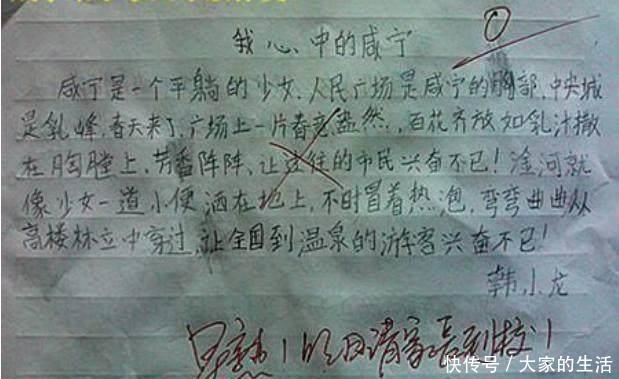 0
我心中的咸宁
咸宁是一个平躺的少女.人民广场是咸宁的胸部.中央城
是乳峰.春天来了.广场上一片春意盎然,百花齐放如乳汁撒
在胸膛上,芳香阵阵、让过往的市民兴奋不已!淦河就
像少女一道小便洒在地上,不时冒着热泡,弯弯曲曲从
高楼林立中穿过,让全国到温泉的游客兴奋不已!
韩小龙
早熟!明日请家长到校!
快传号/大家的生活